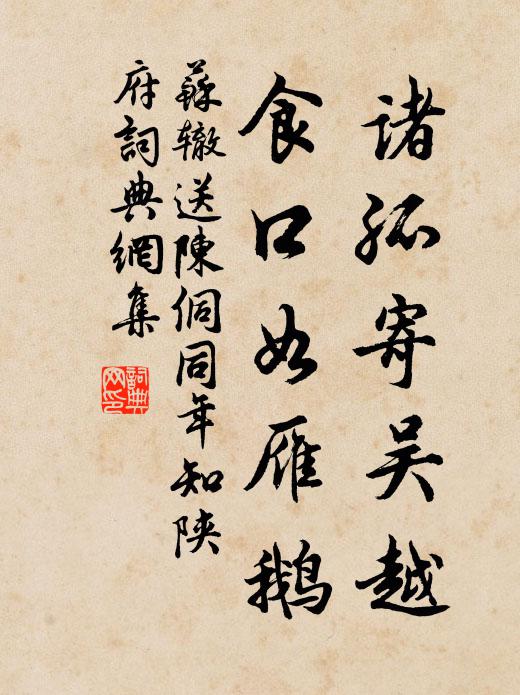 诸孤寄吴越
食口如雁鹅
蘇辙送陳侗同年知陝
府詞典網集
詞典
网印